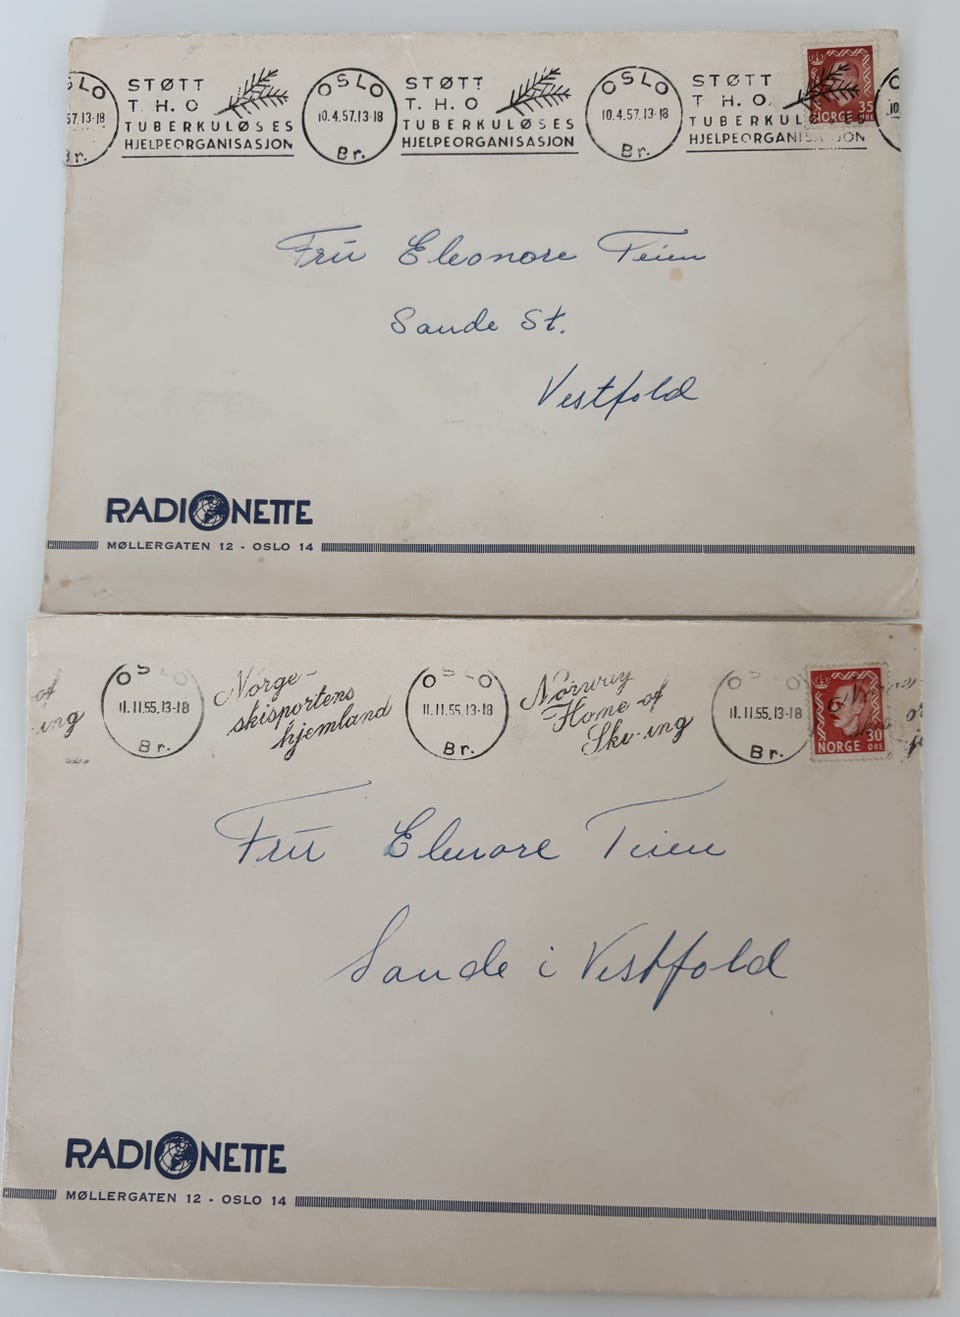 OSLO STØTT OSLO STØTT OSLO STØTT
T. H. O T. H. O T. H. O. 35
57.13-18 TUBERKULØSES 10.4.57.13-18 TUBERKULØSES 10.4.57.13-18 TUBERKULØSES NORGE ØRE 10.
Br. HJELPEORGANISASJON Br. HJELPEORGANISASJON Br. HJELPEORGANISASJON
Frü Eleonore Teien
Sande St.
Vestfold
RADIONETTE
MØLLERGATEN 12 - OSLO 14
of OSLO Norge- OSLO Norway OSLO
ing 11.11.55.13-18 skisportens 11.11.55.13-18 Home of 11.11.55.13-18 30
Br. hjemland Br. Ski-ing Br. NORGE ØRE
Frü Elenore Teien
Sande i Vestfold
RADIONETTE
MØLLERGATEN 12 - OSLO 14